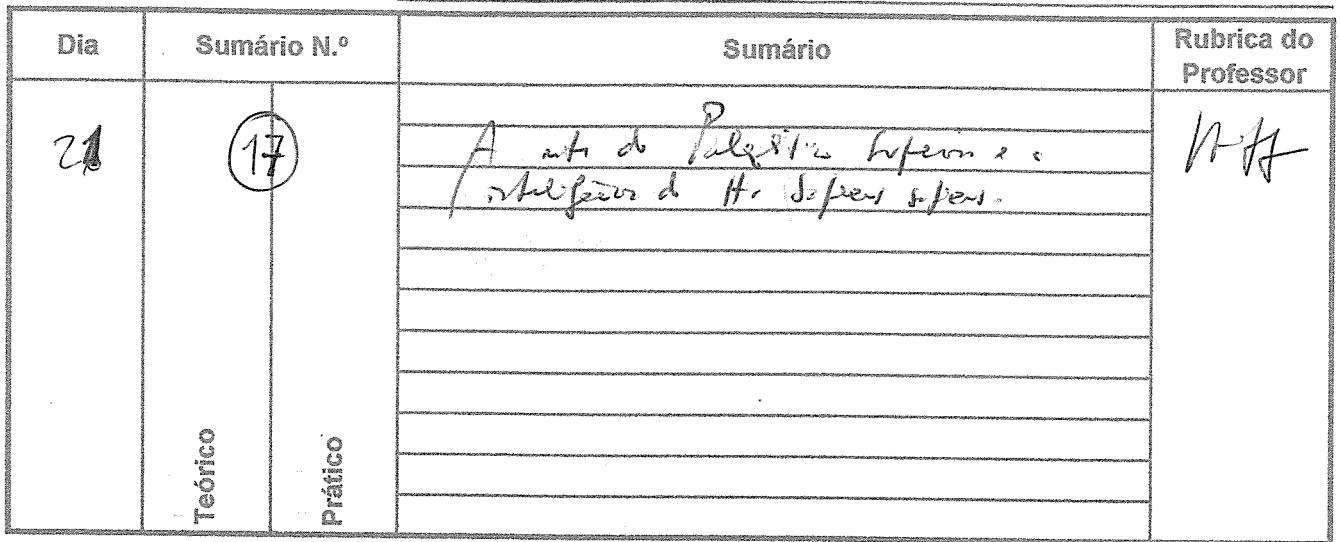 Dia Sumário N.º Sumário Rubrica do Professor
21 17 A arte do Paleolítico Superior e a
inteligência do H. Sapiens sapiens.
Teórico Prático